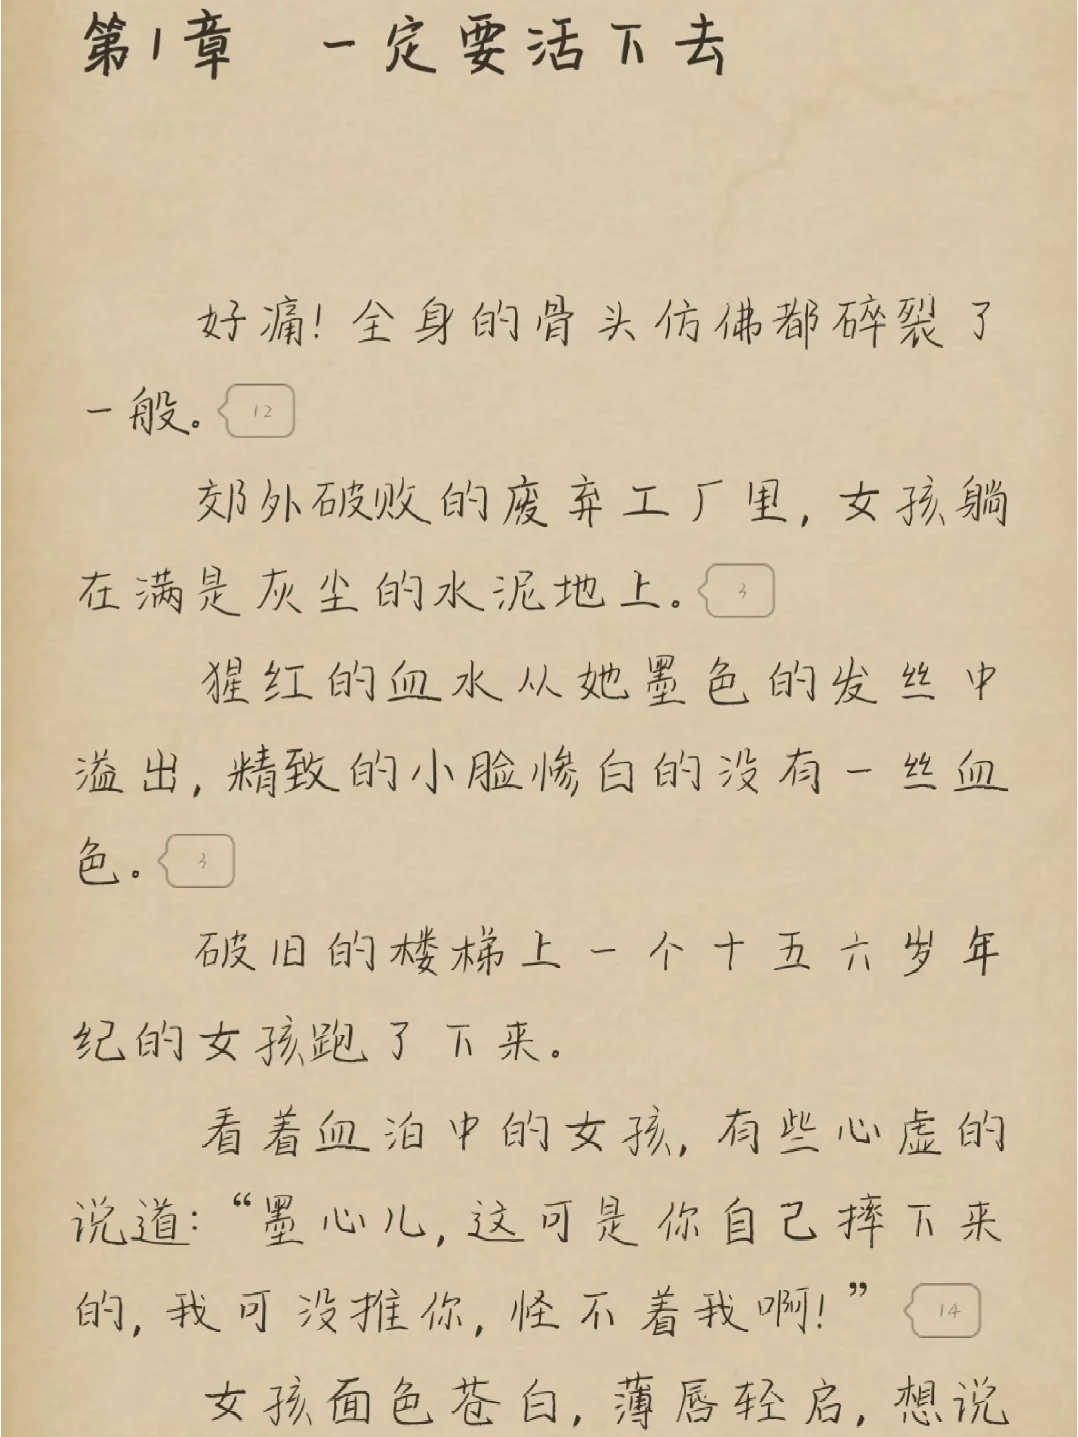 第1章 一定要活下去
好痛！全身的骨头仿佛都碎裂了
一般。 12
郊外破败的废弃工厂里，女孩躺
在满是灰尘的水泥地上。 3
猩红的血水从她墨色的发丝中
溢出，精致的小脸惨白的没有一丝血
色。 3
破旧的楼梯上一个十五六岁年
纪的女孩跑了下来。
看着血泊中的女孩，有些心虚的
说道：“墨心儿，这可是你自己摔下来
的，我可没推你，怪不着我啊！” 14
女孩面色苍白，薄唇轻启，想说